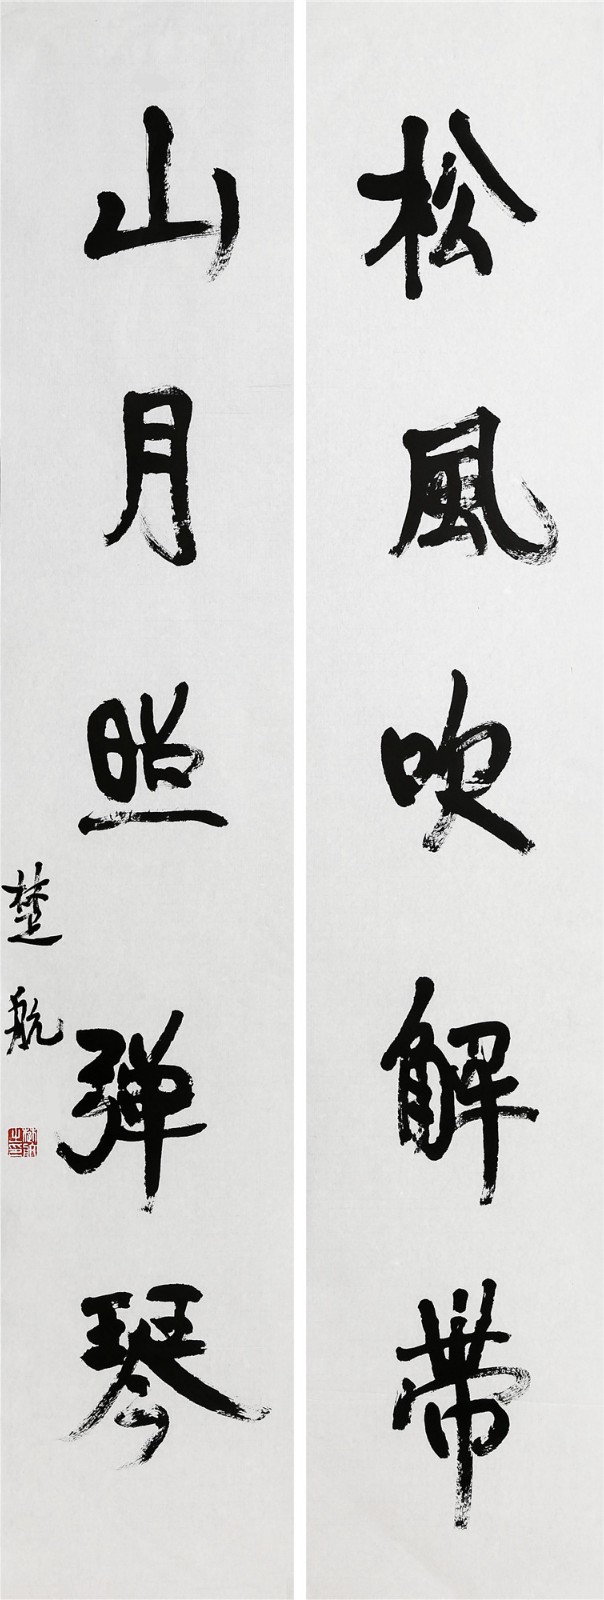 松風吹解帶
山月照弹琴
楚航